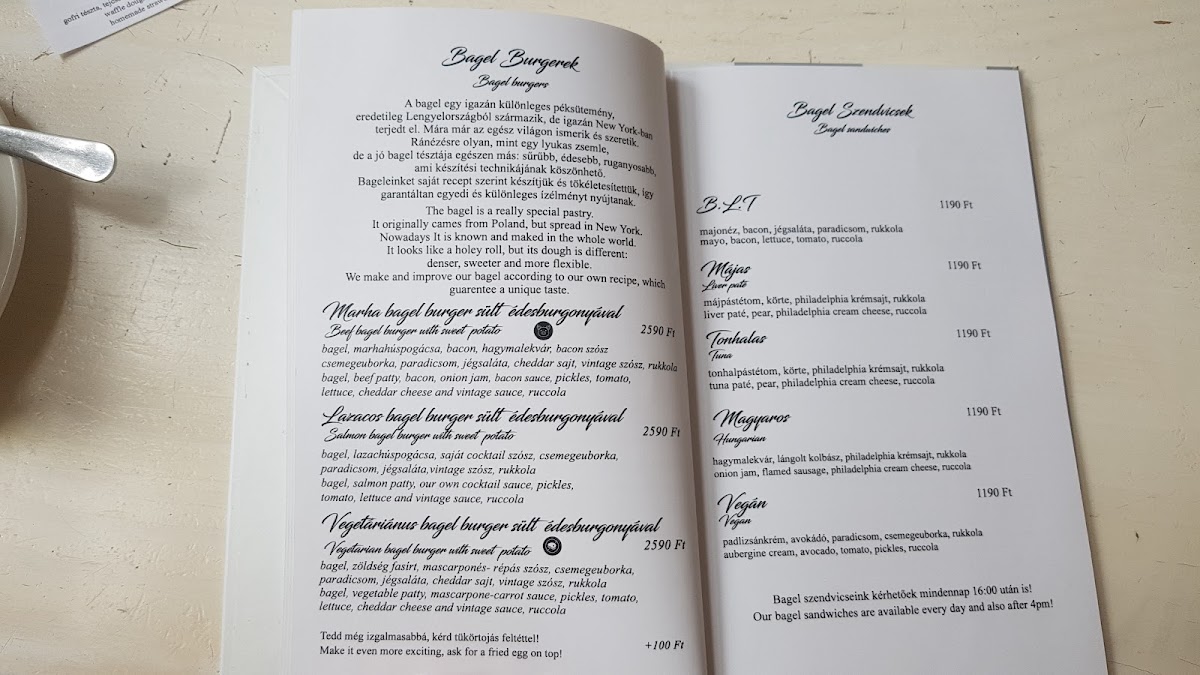 gofri tészta, tej
waffle doug
homemade straw
Bagel Burgerek
Bagel burgers
A bagel egy igazán különleges péksütemény,
eredetileg Lengyelországból származik, de igazán New York-ban
terjedt el. Mára már az egész világon ismerik és szeretik.
Ránézésre olyan, mint egy lyukas zsemle,
de a jó bagel tésztája egészen más: sűrűbb, édesebb, ruganyosabb,
ami készítési technikájának köszönhető.
Bageleinket saját recept szerint készítjük és tökéletesítettük, így
garantáltan egyedi és különleges ízélményt nyújtanak.
The bagel is a really special pastry.
It originally cames from Poland, but spread in New York.
Nowadays It is known and maked in the whole world.
It looks like a holey roll, but its dough is different:
denser, sweeter and more flexible.
We make and improve our bagel according to our own recipe, which
guarentee a unique taste.
Marha bagel burger sült édesburgonyával
Beef bagel burger with sweet potato 2590 Ft
bagel, marhahúspogácsa, bacon, hagymalekvár, bacon szósz
csemegeuborka, paradicsom, jégsaláta, cheddar sajt, vintage szósz, rukkola
bagel, beef patty, bacon, onion jam, bacon sauce, pickles, tomato,
lettuce, cheddar cheese and vintage sauce, ruccola
Lazacos bagel burger sült édesburgonyával
Salmon bagel burger with sweet potato 2590 Ft
bagel, lazachúspogácsa, saját cocktail szósz, csemegeuborka,
paradicsom, jégsaláta,vintage szósz, rukkola
bagel, salmon patty, our own cocktail sauce, pickles,
tomato, lettuce and vintage sauce, ruccola
Vegetáriánus bagel burger sült édesburgonyával
Vegetarian bagel burger with sweet potato 2590 Ft
bagel, zöldség fasírt, mascarponés- répás szósz, csemegeuborka,
paradicsom, jégsaláta, cheddar sajt, vintage szósz, rukkola
bagel, vegetable patty, mascarpone-carrot sauce, pickles, tomato,
lettuce, cheddar cheese and vintage sauce, ruccola
Tedd még izgalmasabbá, kérd tükörtojás feltéttel!
Make it even more exciting, ask for a fried egg on top! +100 Ft
Bagel Szendvicsek
Bagel sandwiches
B.L.T 1190 Ft
majonéz, bacon, jégsaláta, paradicsom, rukkola
mayo, bacon, lettuce, tomato, ruccola
Májas 1190 Ft
Liver paté
májpástétom, körte, philadelphia krémsajt, rukkola
liver paté, pear, philadelphia cream cheese, ruccola
Tonhalas 1190 Ft
Tuna
tonhalpástétom, körte, philadelphia krémsajt, rukkola
tuna paté, pear, philadelphia cream cheese, ruccola
Magyaros 1190 Ft
Hungarian
hagymalekvár, lángolt kolbász, philadelphia krémsajt, rukkola
onion jam, flamed sausage, philadelphia cream cheese, ruccola
Vegán 1190 Ft
Vegan
padlizsánkrém, avokádó, paradicsom, csemegeuborka, rukkola
aubergine cream, avocado, tomato, pickles, ruccola
Bagel szendvicseink kérhetőek mindennap 16:00 után is!
Our bagel sandwiches are available every day and also after 4pm!